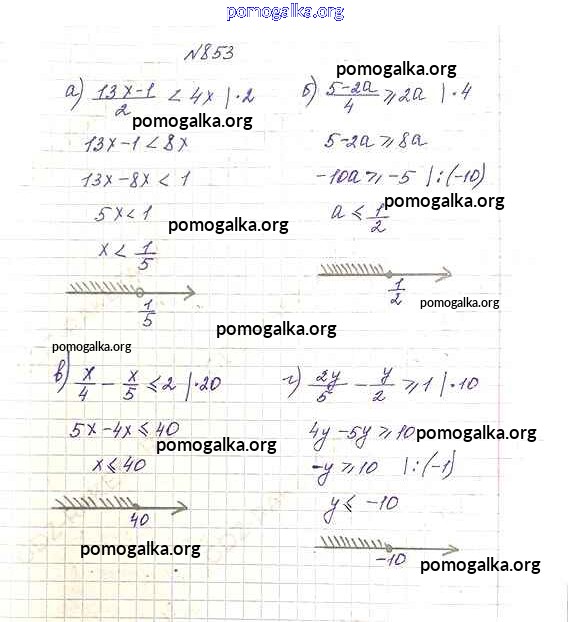 pomogalka.org
№853
а) 13x-1/2 < 4x |·2
pomogalka.org
13x-1 < 8x
13x-8x < 1
5x < 1
pomogalka.org
x < 1/5
1/5
pomogalka.org
б) 5-2a/4 ⩾ 2a |·4
5-2a ⩾ 8a
-10a ⩾ -5 |:(-10)
pomogalka.org
a ⩽ 1/2
1/2
pomogalka.org
pomogalka.org
pomogalka.org
в) x/4 - x/5 ⩽ 2 |·20
5x-4x ⩽ 40
pomogalka.org
x ⩽ 40
40
pomogalka.org
г) 2y/5 - y/2 ⩾ 1 |·10
4y-5y ⩾ 10 pomogalka.org
-y ⩾ 10 |:(-1)
y ⩽ -10
-10
pomogalka.org